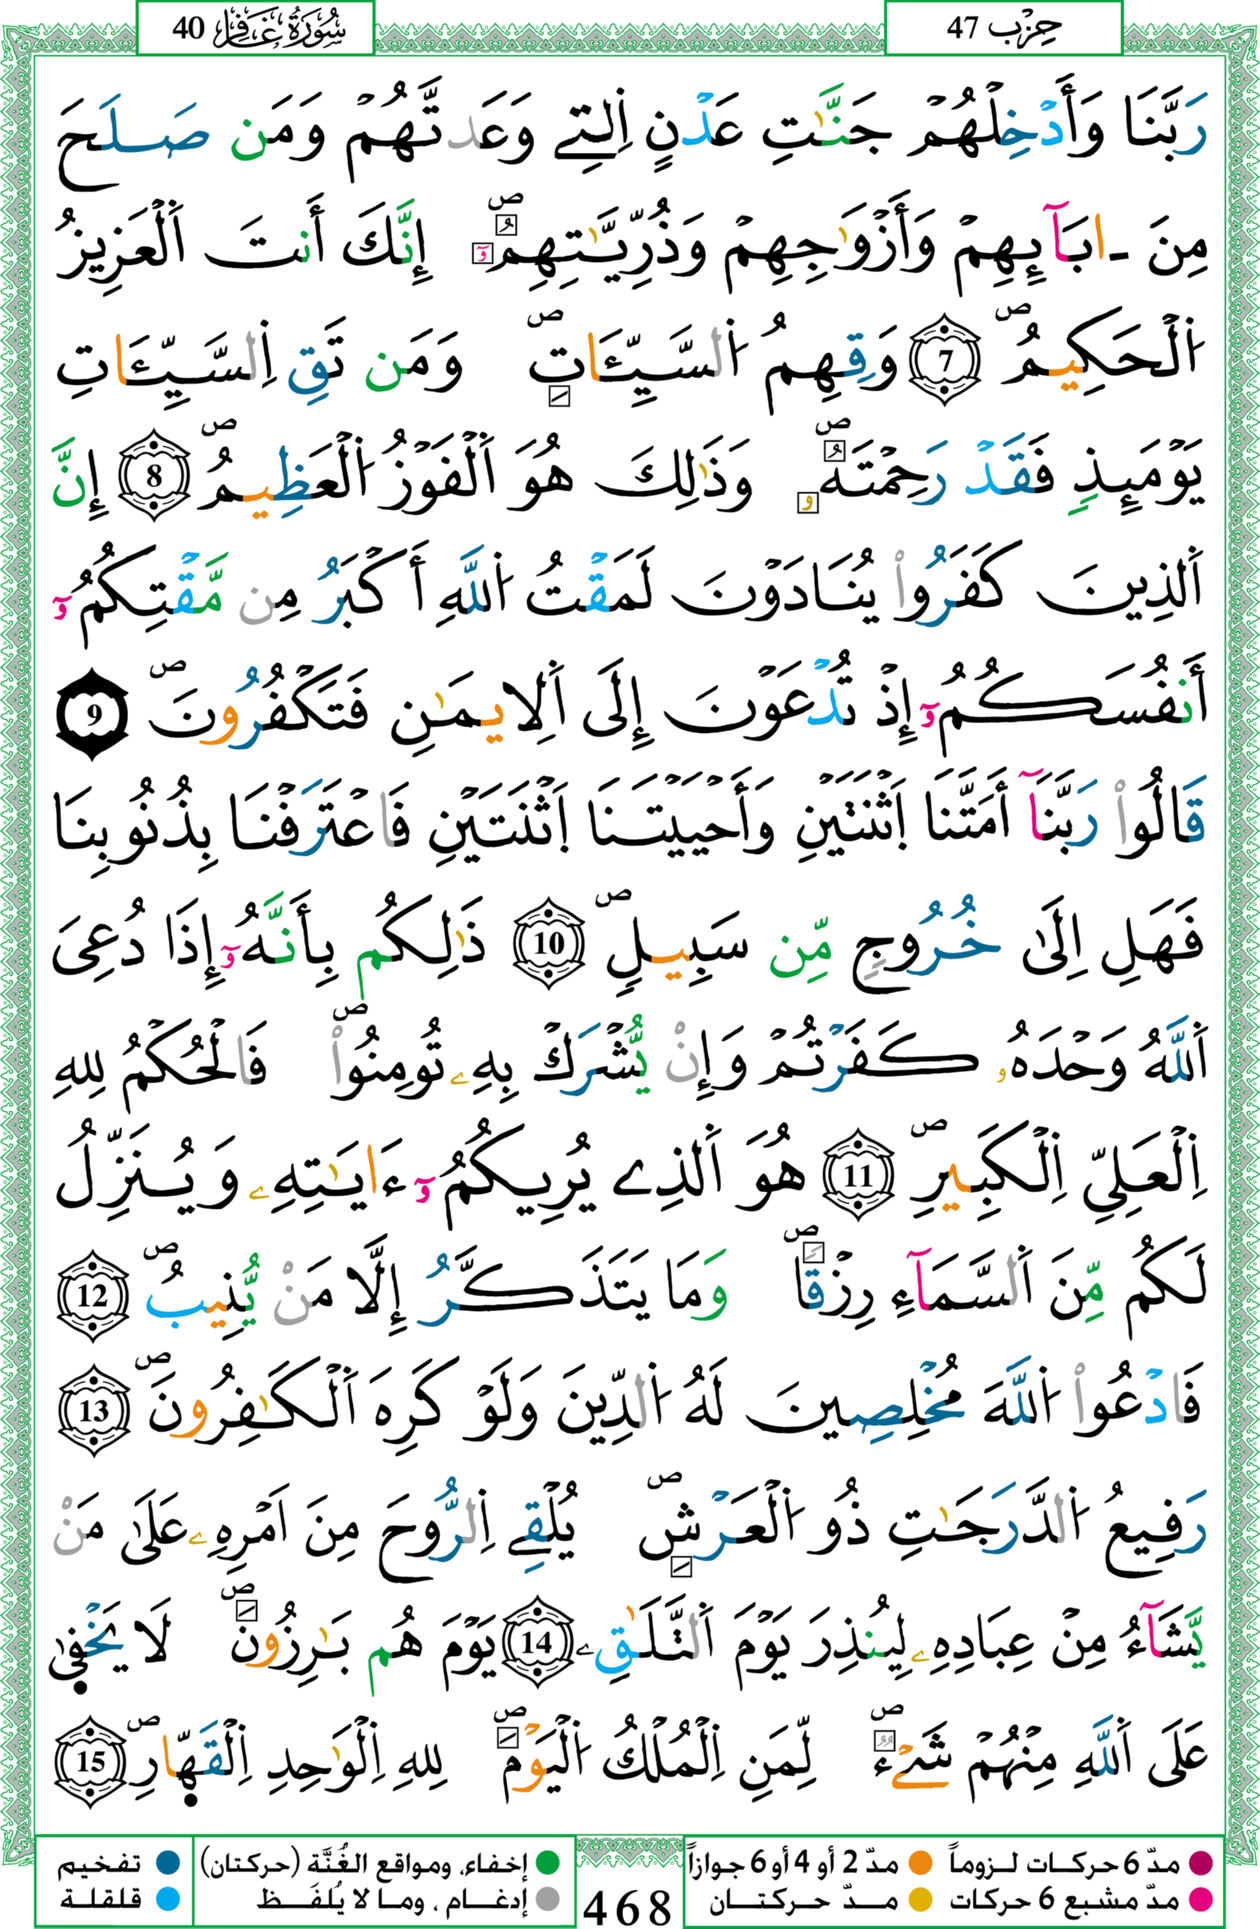 حِزْب 47
سُورَةُ غَافِر 40
رَبَّنَا وَأَدْخِلْهُمْ جَنَّٰتِ عَدْنٍ اِلتِے وَعَدتَّهُمْ وَمَن صَلَحَ
مِنَ ـ ابَآئِهِمْ وَأَزْوَٰجِهِمْ وَذُرِّيَّٰتِهِمُۥٓ إِنَّكَ أَنتَ اَلْعَزِيزُ
اُلْحَكِيمُ 7 وَقِهِمُ اُلسَّيِّـَٔاتِ وَمَن تَقِ اِلسَّيِّـَٔاتِ
يَوْمَئِذٖ فَقَدْ رَحِمْتَهُۥ وَذَٰلِكَ هُوَ اَلْفَوْزُ اُلْعَظِيمُ 8 إِنَّ
اَلذِينَ كَفَرُواْ يُنَادَوْنَ لَمَقْتُ اُللَّهِ أَكْبَرُ مِن مَّقْتِكُمُۥٓ
أَنفُسَكُمُۥٓ إِذْ تُدْعَوْنَ إِلَى اَلِايمَٰنِ فَتَكْفُرُونَ 9
قَالُواْ رَبَّنَآ أَمَتَّنَا اَثْنَتَيْنِ وَأَحْيَيْتَنَا اَثْنَتَيْنِ فَاعْتَرَفْنَا بِذُنُوبِنَا
فَهَلِ اِلَىٰ خُرُوجٖ مِّن سَبِيلٖ 10 ذَٰلِكُم بِأَنَّهُۥٓ إِذَا دُعِيَ
اَللَّهُ وَحْدَهُۥ كَفَرْتُمْ وَإِنْ يُّشْرَكْ بِهِۦ تُومِنُواْ فَالْحُكْمُ لِلهِ
اِلْعَلِيِّ اِلْكَبِيرِ 11 هُوَ اَلذِے يُرِيكُمُۥٓ ءَايَٰتِهِۦ وَيُنَزِّلُ
لَكُم مِّنَ اَلسَّمَآءِ رِزْقاٗ وَمَا يَتَذَكَّرُ إِلَّا مَنْ يُّنِيبُ 12
فَادْعُواْ اُللَّهَ مُخْلِصِينَ لَهُ اُلدِّينَ وَلَوْ كَرِهَ اَلْكَٰفِرُونَ 13
رَفِيعُ اُلدَّرَجَٰتِ ذُو اُلْعَرْشِ يُلْقِے اِلرُّوحَ مِنَ اَمْرِهِۦ عَلَىٰ مَنْ
يَّشَآءُ مِنْ عِبَادِهِۦ لِيُنذِرَ يَوْمَ اَلتَّلَٰقِۦ 14 يَوْمَ هُم بَٰرِزُونَ لَا يَخْفۭيٰ
عَلَى اَللَّهِ مِنْهُمْ شَےْءٞ لِّمَنِ اِلْمُلْكُ اُلْيَوْمَ لِلهِ اِلْوَٰحِدِ اِلْقَهّ۪ارِ 15
مدّ 6 حركات لـزوماً مدّ 2 أو 4 أو 6 جوازاً إخفاء، ومواقع الغُنَّة (حركتان) تفخيم
مدّ مشبع 6 حركات مــدّ حـركتــان إدغـام ، ومـا لا يُلفَـظ قلقلة
468